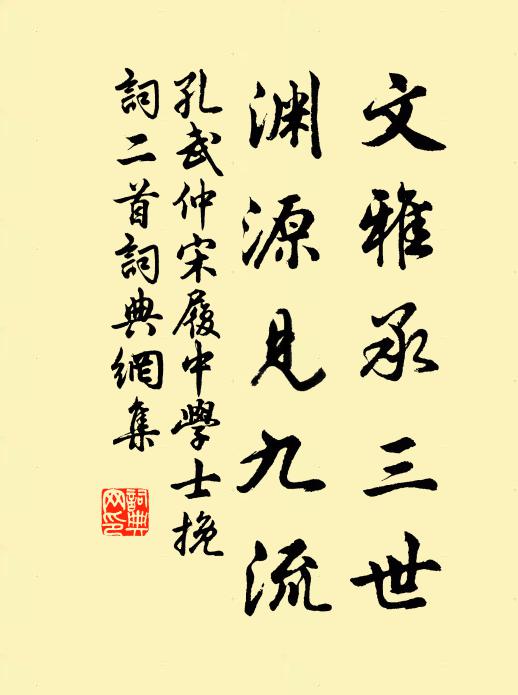 文雅承三世
渊源見九流
孔武仲宋履中學士挽
詞二首詞典網集
詞典
网印